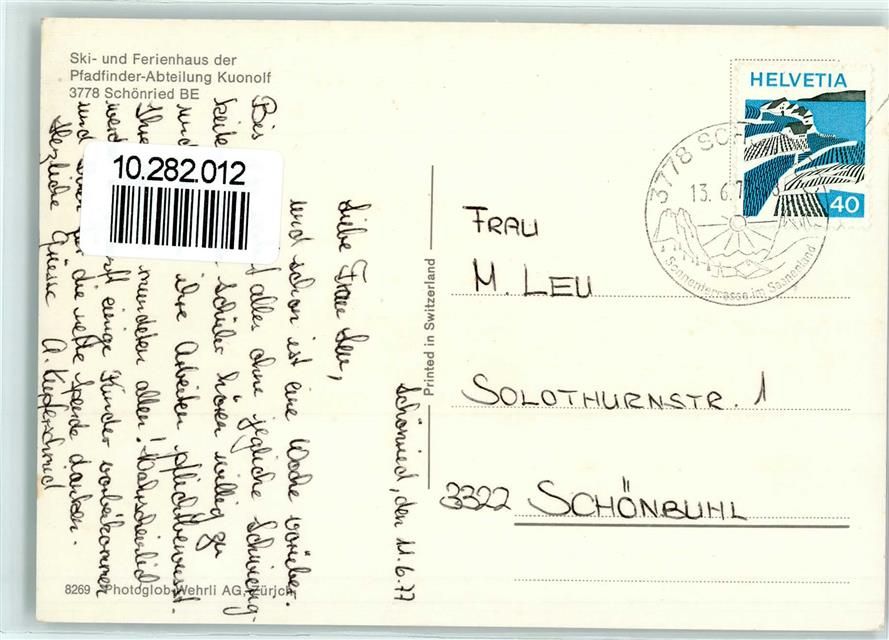 Ski- und Ferienhaus der
Pfadfinder-Abteilung Kuonolf
3778 Schönried BE
10.282.012
HELVETIA
40
3778 SCH
13. 6. 7
Sonnenterrasse im Saanenland
Schönried, den 11.6.77
Liebe Frau Leu,
und schon ist eine Woche vorüber.
Bis auf aller ohne jegliche Schwierig-
keite Schüler hören willig zu
und ihre Arbeiten pflichtbewusst.
Ihre mundeten allen! Wahrscheinlich
werd einige Kinder vorbeikommen
und für die nette Spende danken.
Herzliche Grüsse A. Kupferschmid
Printed in Switzerland
FRAU
M. LEU
SOLOTHURNSTR. 1
3322 SCHÖNBUHL
8269 Photoglob-Wehrli AG, Zürich